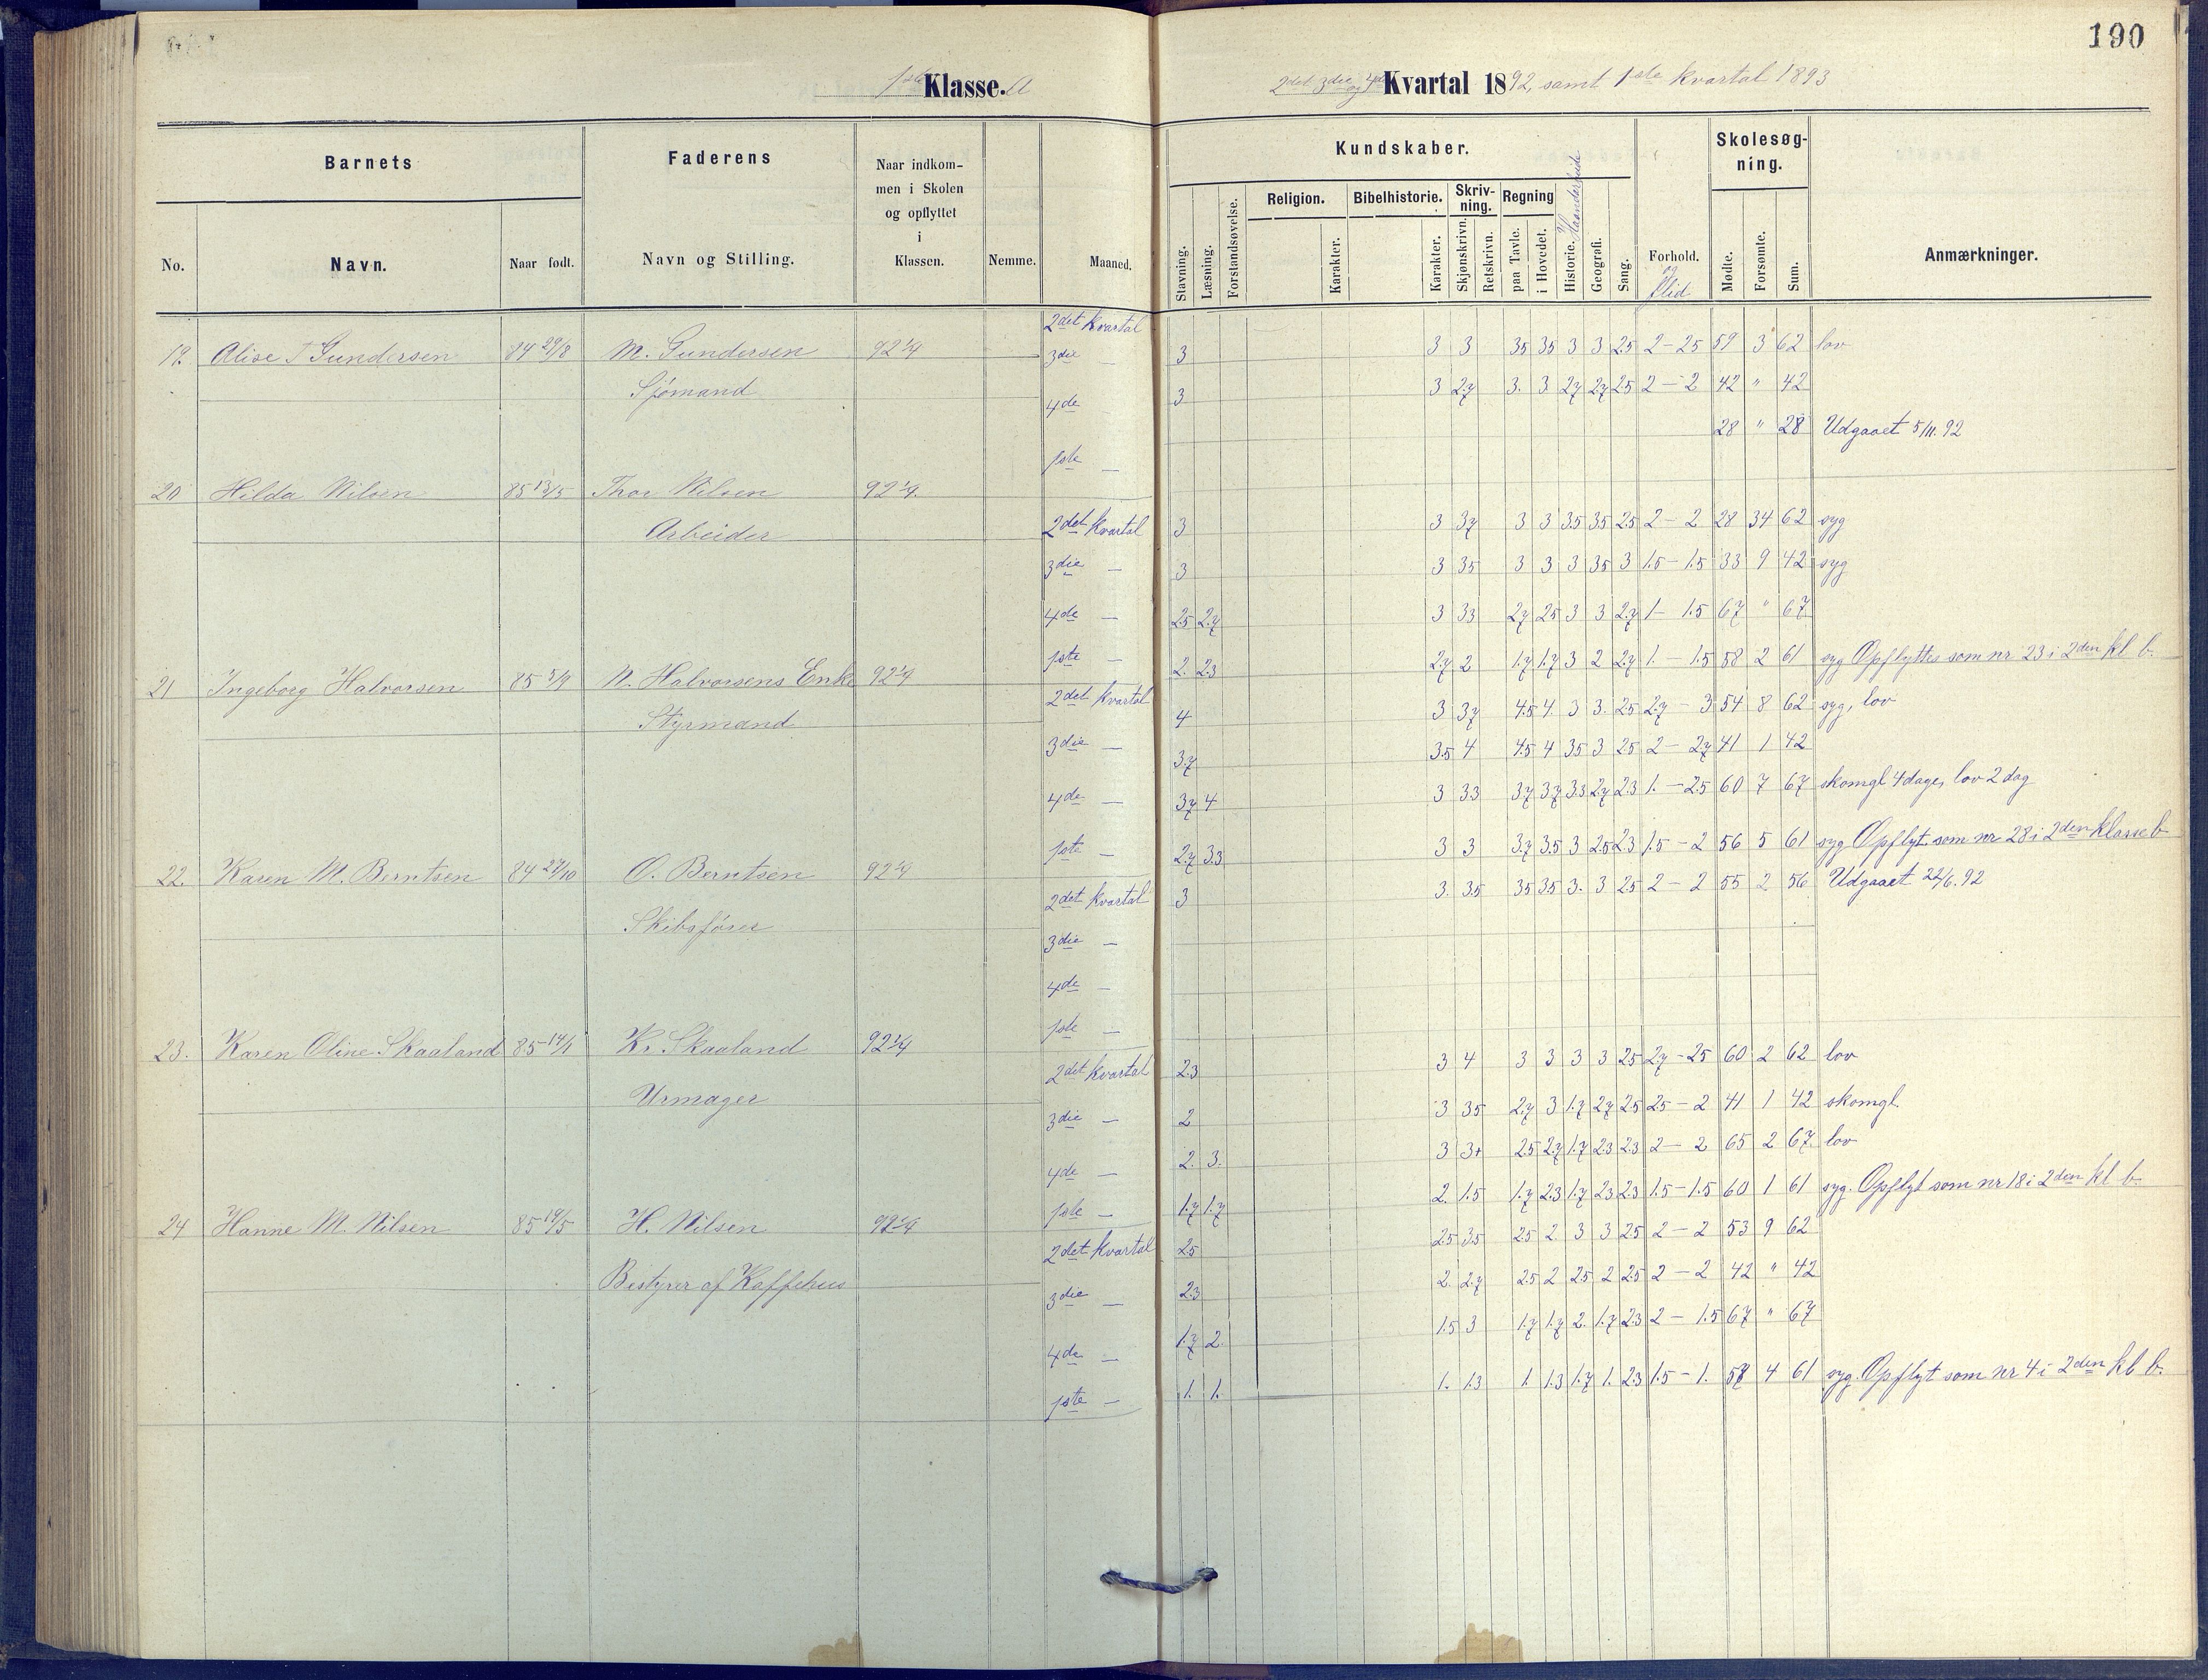 190
1ste Klasse. A
2det 3die og 4de Kvartal 1892, samt 1ste kvartal 1893
Barnets
Faderens
Naar indkom-
men i Skolen
og opflyttet
i
Klassen.
No.
Navn.
Naar født.
Navn og Stilling.
Nemme.
Maaned.
Kundskaber.
Skolesøg-
ning.
Religion.
Bibelhistorie.
Skriv-
ning.
Regning
Haandarbeide
Stavning.
Læsning.
Forstandsøvelse.
Karakter.
Karakter.
Skjønskrivn.
Retskrivn.
paa Tavle.
i Hovedet.
Historie.
Geografi.
Sang.
Forhold.
og Flid
Mødte.
Forsømte.
Sum.
Anmærkninger.
2det kvartal
19. Alise T Gundersen 84 29/8 M. Gundersen 92 1/4 3die — 3 3 3 35 35 3 3 25 2-25 59 3 62 lov
Sjömand 4de 3 3 2.7 3. 3 27 27 25 2-2 42 " 42
28 " 28 Udgaaet 5/11.92
1ste —
20 Hilda Nilsen 85 13/5 Thor Nilsen 92 1/4.
Arbeider 2det kvartal 3 3 37 3 3 3.5 35 25 2-2 28 34 62 syg
3die — 3 3 35 3 3 3 35 3 1.5-1.5 33 9 42 syg
4de — 25 2.7 3 33 27 25 3 3 2.7 1-1.5 67 " 67
1ste — 2. 23 2.7 2 1.7 1.7 3 2 2.7 1.-1.5 58 2 61 syg Opflyttes som nr 23 i 2den kl b.
21 Ingeborg Halvorsen 85 5/9 N. Halvorsens Enke 92 1/4
Styrmand 2det kvartal 4 3 37 4.5 4 3 3. 25 2.7-3 54 8 62 syg, lov
3die — 3.7 3.5 4 4.5 4 35 3 2.5 2-27 41 1 42
4de — 37 4 3 33 3.7 3.7 3.3 2.7 2.3 1.-25 60 7 67 skomgl 4 dage, lov 2 dag
1ste — 2.7 3.3 3 3 3.7 3.5 3 25 23 1.5-2 56 5 61 syg Opflyt. som nr 28 i 2den klasse b
22. Karen M. Berntsen 84 27/10 O. Berntsen 92 1/4
Skibsfører 2det kvartal 3 3. 3.5 35 3.5 3. 3 25 2-2 55 2 56 Udgaaet 22/6.92
3die —
4de —
1ste —
23. Karen Oline Skaaland 85 14/1 Kr. Skaaland 92 1/4
Urmager 2det kvartal 23 3 4 3 3 3 3 25 27-25 60 2 62 lov
3die — 2 3 35 2.7 3 1.7 27 25 25-2 41 1 42 skomgl.
4de — 2. 3. 3 3+ 25 2.7 1.7 23 23 2-2 65 2 67. lov
1ste — 1.7 1.7 2. 1.5 1.7 2.3 1.7 23 23 1.5-1.5 60 1 61 syg. Opflyt som nr 18 i 2den kl b.
24 Hanne M. Nilsen 85 19/5 H. Nilsen 92 1/4
Bestyrer af Kaffehus 2det kvartal 25 25 3.5 25 2 3 3 25 2-2 53 9 62
3die — 23 2. 2.7 25 2 25 2 25 2-2 42 " 42
4de — 1.7 2. 1.5 3 1.7 1.7 2. 1.7 23 2-1.5 67 " 67
1ste — 1. 1. 1. 1.3 1. 1.3 1.7 1. 23 1.5-1. 57 4 61 syg. Opflyt som nr 4 i 2den kl b.